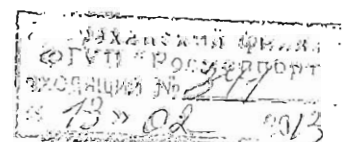 филиал
ФГУП "Росморпорт"
ВХОДЯЩИЙ № 311
« 13 » 02 2013